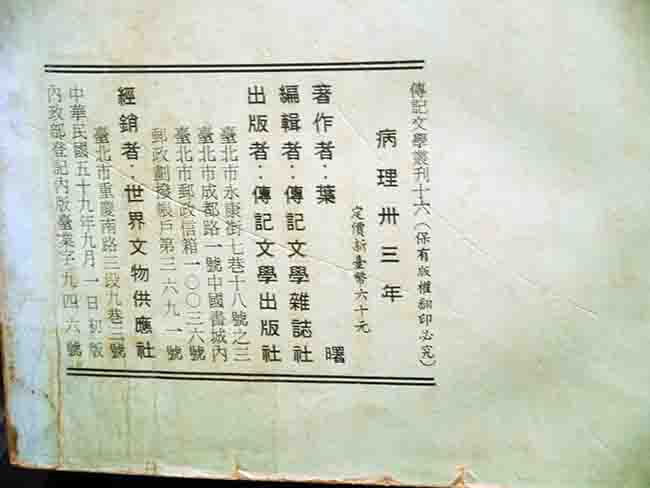 傳記文學叢刊十六(保有版權翻印必究)
病理卅三年
定價新臺幣六十元
著作者：葉曙
編輯者：傳記文學雜誌社
出版者：傳記文學出版社
臺北市永康街七巷十八號之三
臺北市成都路一號中國書城內
臺北市郵政信箱一〇〇三六號
郵政劃撥帳戶第三六九一號
經銷者：世界文物供應社
臺北市重慶南路三段九巷三號
中華民國五十九年九月一日初版
內政部登記內版臺業字九四六號